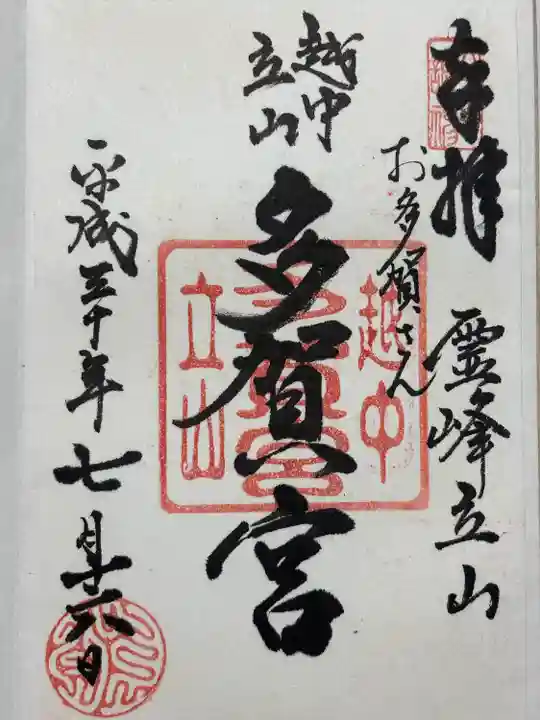 奉拝
霊峰立山
お多賀さん
越中
立山
多賀宮
越中
立山
平成三十年七月十六日